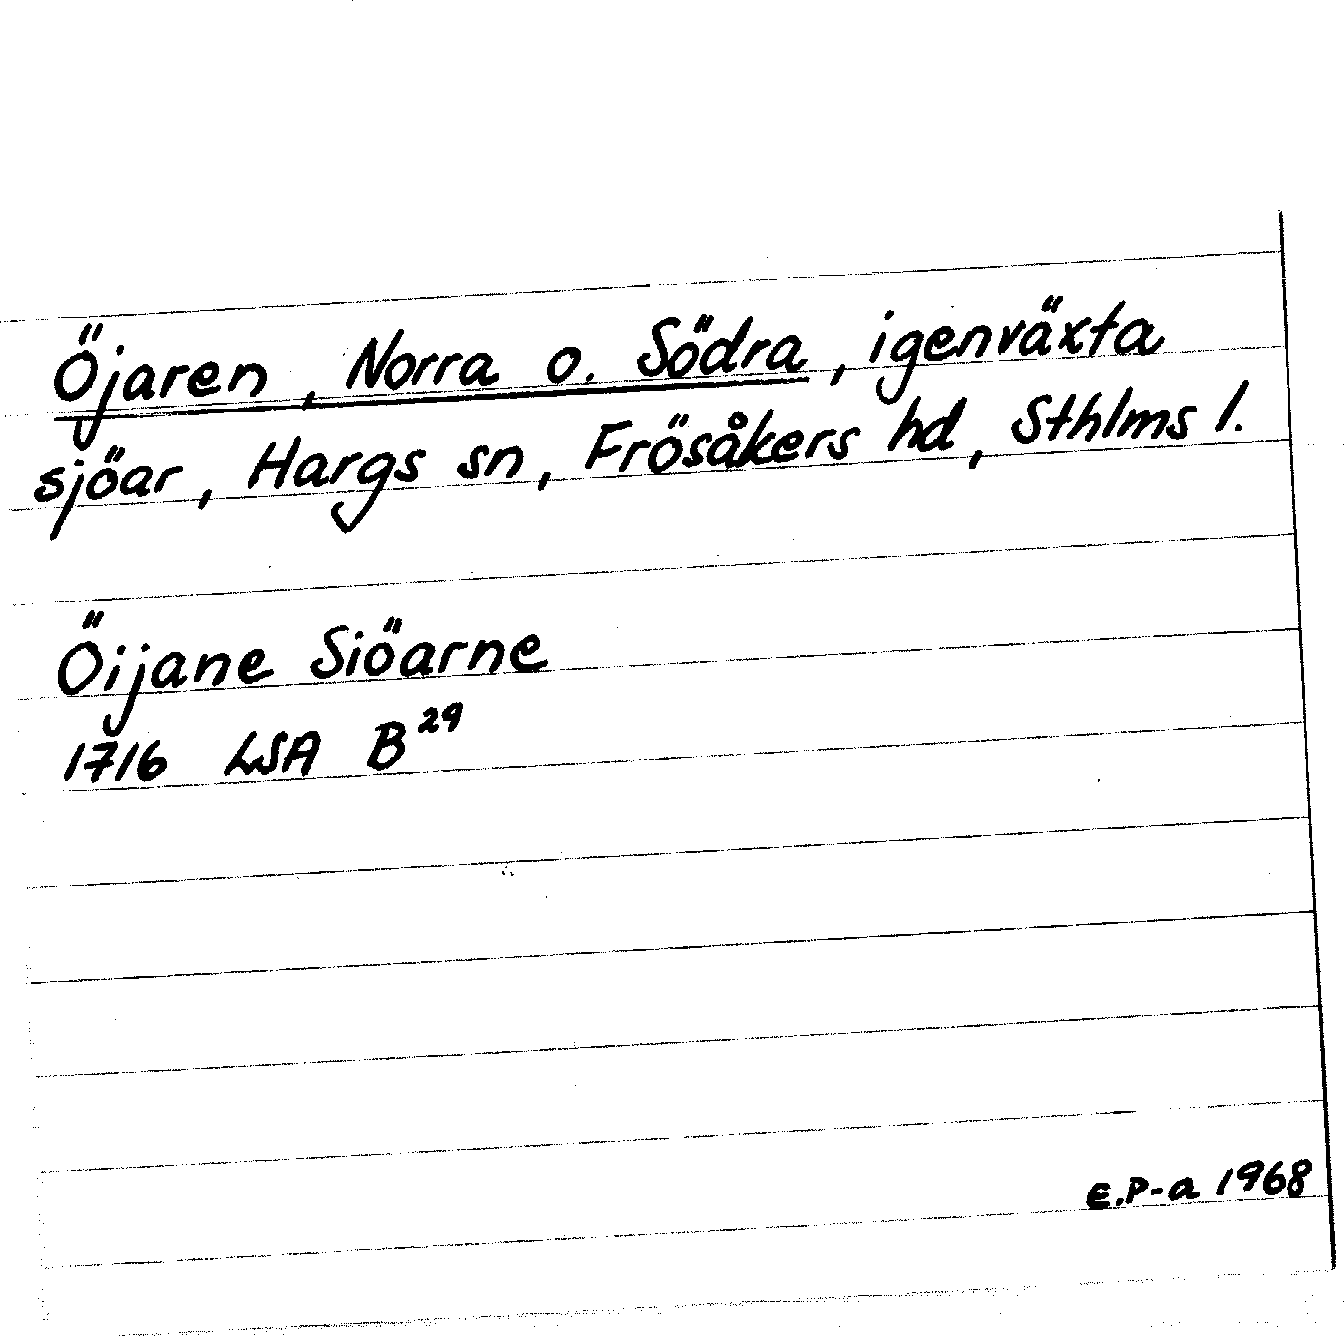 Öjaren, Norra o. Södra, igenväxta
sjöar, Hargs sn, Frösåkers hd, Sthlms l.
Öijane Siöarne
1716 LSA B²⁹
E.P-a 1968